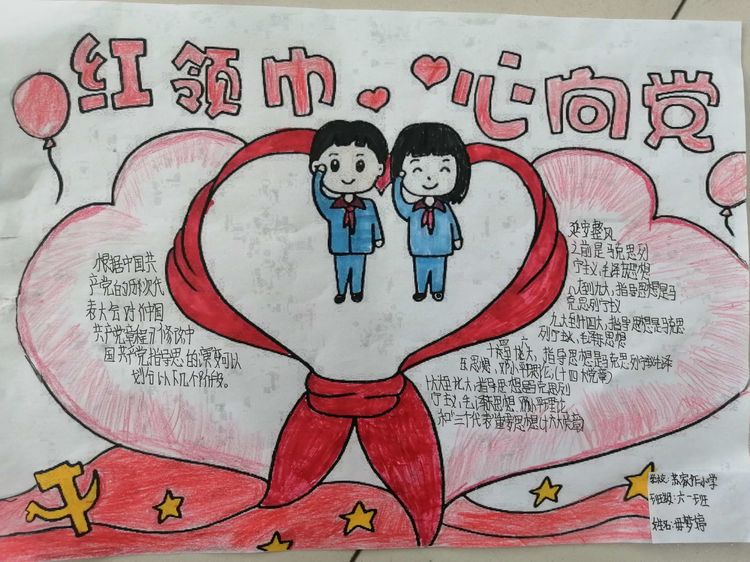 红领巾 心向党
根据中国共
产党的历次代
表大会对《中国
共产党章程》的修改中
国共产党指导思的演变可以
划分以下几个阶段。
延安整风
之前是马克思列
宁主义、毛泽东思想
七到九大,指导思想是马
克思列宁主义
九大到十四大,指导思想是马克思
列宁主义、毛泽东思想
指导思想是马克思列宁主义毛泽
东思想,邓小平理论,(十四大党章)
十六大至十七大,指导思想是马克思列
宁主义,毛泽东思想、邓小平理论
和"三个代表"重要思想(十六大党章)
学校:苏家作小学
班级:六一班
姓名:毋梦婷